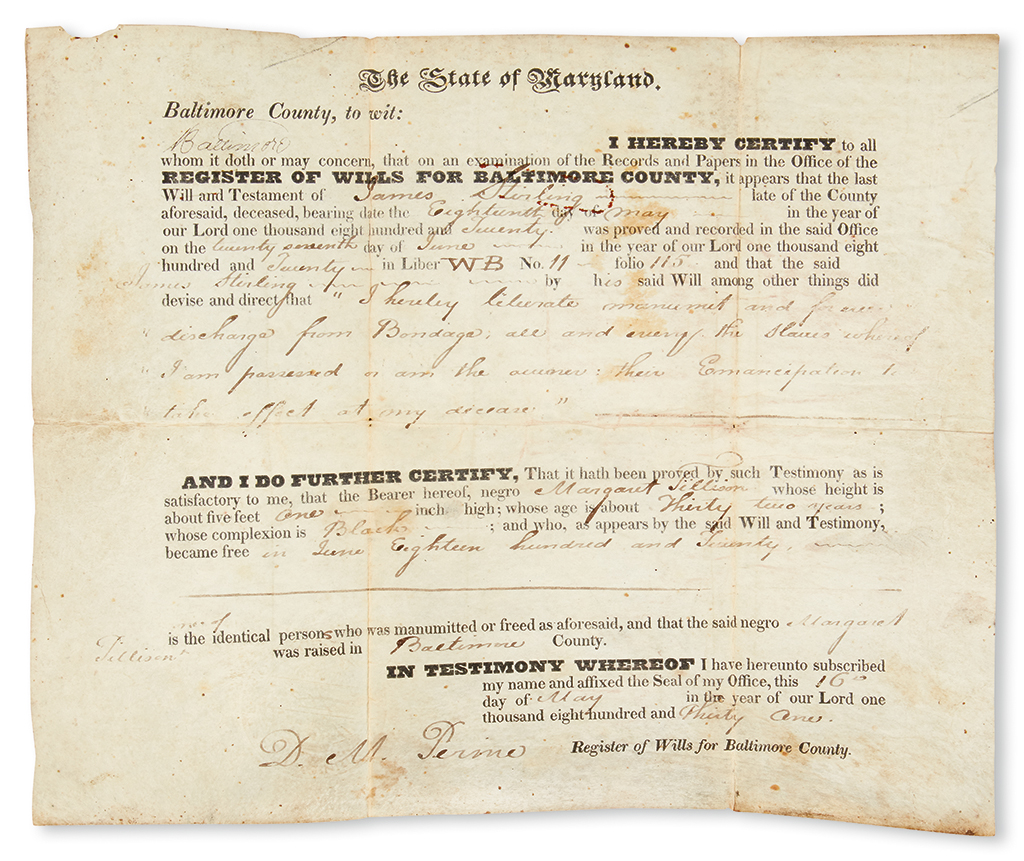 The State of Maryland.
Baltimore County, to wit:
Baltimore
I HEREBY CERTIFY to all
whom it doth or may concern, that on an examination of the Records and Papers in the Office of the
REGISTER OF WILLS FOR BALTIMORE COUNTY, it appears that the last
Will and Testament of James Stirling late of the County
aforesaid, deceased, bearing date the Eighteenth day of May in the year of
our Lord one thousand eight hundred and Twenty. was proved and recorded in the said Office
on the twenty seventh day of June in the year of our Lord one thousand eight
hundred and Twenty in Liber WB No. 11 folio 115 and that the said
James Stirling by his said Will among other things did
devise and direct that "I hereby liberate manumit and forever
" discharge from Bondage, all and every the Slaves whereof
" I am possessed or am the owner: their Emancipation to
take effect at my decease"
AND I DO FURTHER CERTIFY, That it hath been proved by such Testimony as is
satisfactory to me, that the Bearer hereof, negro Margaret Tillison whose height is
about five feet one inch high; whose age is about Thirty two years;
whose complexion is Black ; and who, as appears by the said Will and Testimony,
became free in June Eighteen hundred and Twenty,
one of
is the identical persons who was manumitted or freed as aforesaid, and that the said negro Margaret
Tillison was raised in Baltimore County.
IN TESTIMONY WHEREOF I have hereunto subscribed
my name and affixed the Seal of my Office, this 16th
day of May in the year of our Lord one
thousand eight hundred and Thirty One.
D. M. Perine Register of Wills for Baltimore County.